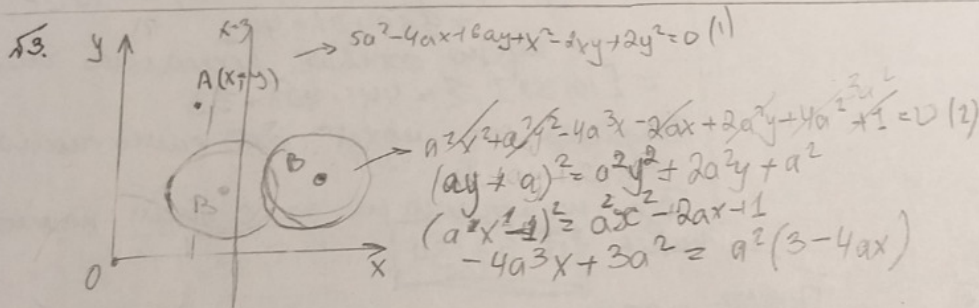 №3.
y
x=3
A(x; y)
5a²-4ax+6ay+x²-2xy+2y²=0 (1)
B
B
a²x²+a²y²-4a³x-2ax+2a²y+4a²+1=0 (2)
3a²
(ay+a)²=a²y²+2a²y+a²
(ax-1)²=a²x²-2ax+1
-4a³x+3a²=a²(3-4ax)
0
x